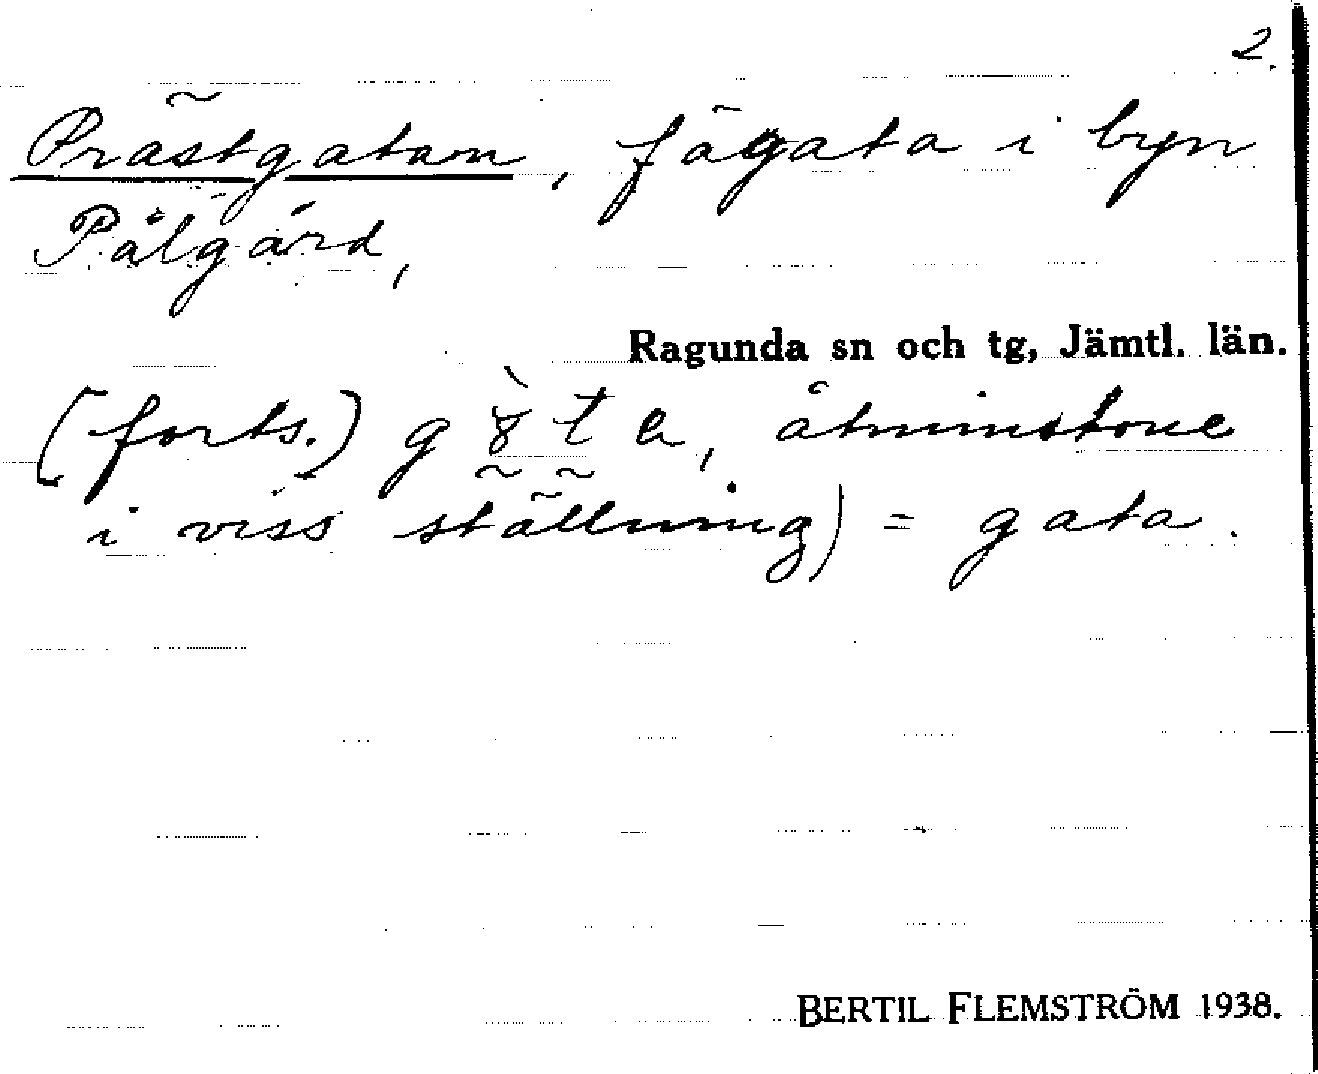 2.
Prästgatan, fägata i byn
Pålgård,
Ragunda sn och tg, Jämtl. län.
(forts.) åtminstone
i viss ställning) = gata.
BERTIL FLEMSTRÖM 1938.